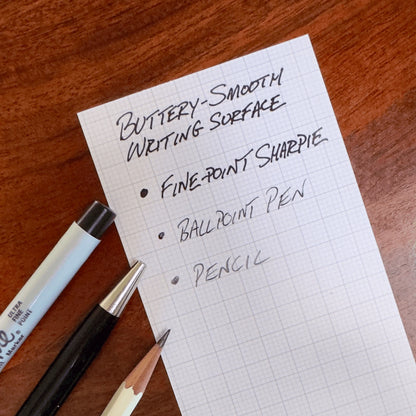 BUTTERY-SMOOTH
WRITING SURFACE
• FINE-POINT SHARPIE
• BALLPOINT PEN
• PENCIL
ULTRA
FINE
POINT
Marker